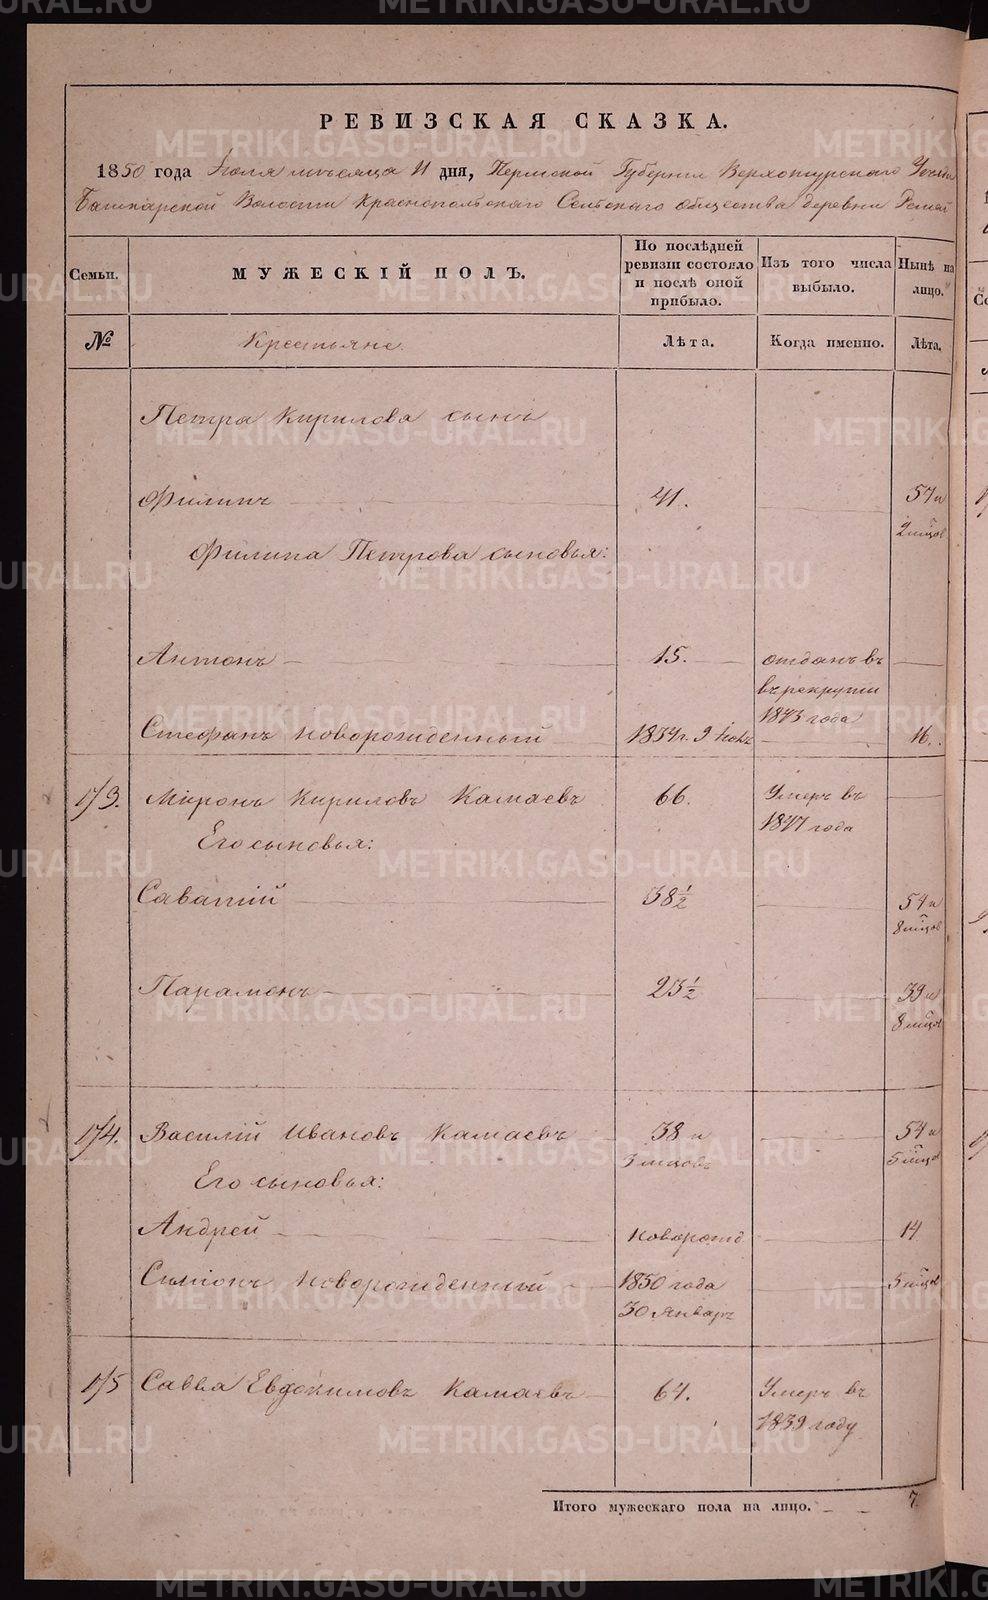 РЕВИЗСКАЯ СКАЗКА.
1850 года Июля месяца 11 дня, Пермской Губернии Верхотурскаго Уезда
Башкарской Волости Краснопольскаго Сельскаго общества деревни
Семьи. МУЖЕСКІЙ ПОЛЪ. По послѣдней ревизіи состояло и послѣ оной прибыло. Изъ того числа выбыло. Нынѣ на лицо.
№ Крестьяне. Лѣта. Когда именно. Лѣта.
Петра Кирилова сынъ
Филипъ 41. 57 и
2 мѣсцов
Филипа Петрова сыновья:
Антонъ 15. отданъ въ
въ рекруты
1843 года
Стефанъ новорожденный 1834 г. 16.
173. Миронъ Кириловъ Камаевъ 66. Умеръ въ
1847 года
Его сыновья:
Саватій 38½ 54 и
8 мѣсцов
Парамонъ 23½ 39 и
8 мѣсцов
174. Василій Ивановъ Камаевъ 38 и 54 и
3 мѣсцовъ 5 мѣсцов
Его сыновья:
Андрей новорожд 14
Симіонъ новорожденный 1850 года 5 мѣсцов
30 Январъ
175 Савва Евдокимовъ Камаевъ 64. Умеръ въ
1839 году
Итого мужескаго пола на лицо. 7.
METRIKI.GASO-URAL.RU